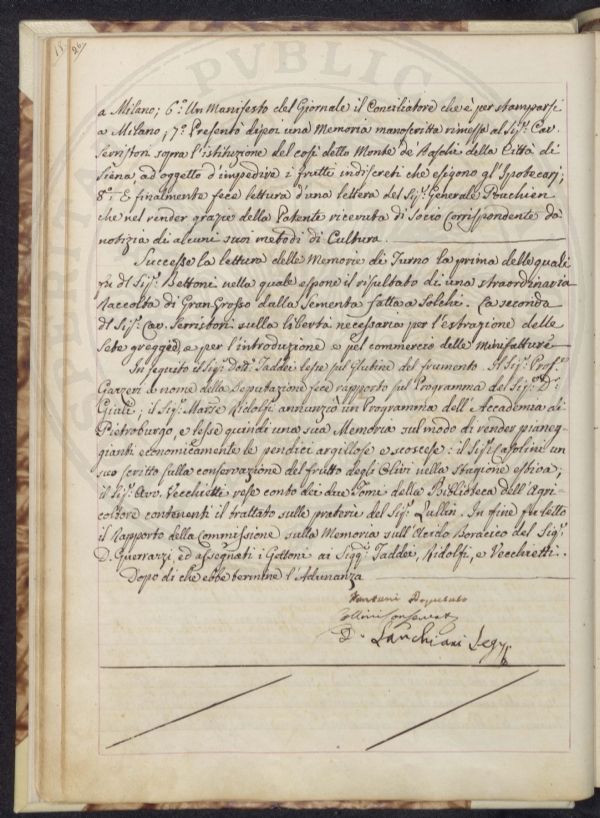 18.
26
a Milano; 6.° Un Manifesto del Giornale il Conciliatore che è per stamparsi
a Milano; 7.° Presentò dipoi una Memoria manoscritta rimessa al Sig.r Cav.
Serristori sopra l'istituzione del così detto Monte de Paschi della Città di
Siena ad oggetto d'impedire i frutti indiscreti che esigono gl'Ipotecarj;
8.° E finalmente fece lettura d'una lettera del Sig.r Generale
che nel render grazie della Patente ricevuta di Socio Corrispondente dà
notizia di alcuni suoi metodi di Cultura.
Successe la lettura delle Memorie di Turno la prima delle quali
fu dl Sig.r Bettoni nella quale espone il risultato di una straordinaria
raccolta di Gran Grosso dalla sementa fatta a Solchi. La seconda
dl Sig.r Cav. Serristori sulla libertà necessaria per l'estrazione delle
Sete greggie, e per l'introduzione e pel commercio delle Manifatture
In seguito il Sig.r Dott. Taddei lesse sul Glutine del frumento. Il Sig.r Prof.re
Gazzeri a nome della Deputazione fece rapporto sul Programma del Sig.r D.r
Giuli; il Sig.r Mar.se Ridolfi annunziò un Programma dell'Accademia di
Pietroburgo, e lesse quindi una sua Memoria sul modo di render pianeg-
gianti economicamente le pendici argillose e scoscese: il Sig.r un
suo scritto sulla conservazione del frutto degli Olivi nella stagione estiva;
il Sig.r Avv. Vecchietti rese conto dei due Tomi della Biblioteca dell'Agri-
coltore contenenti il trattato sulle praterie del Sig.r Lullin. In fine fu letto
il Rapporto della Commissione sulla Memoria sull'Acido Boracico del Sig.r
D. Guerrazzi ed assegnati i Gettoni ai Sigg.ri Taddei, Ridolfi, e Vecchietti.
Dopo di che ebbe termine l'Adunanza
Deputato
D.r Segr.